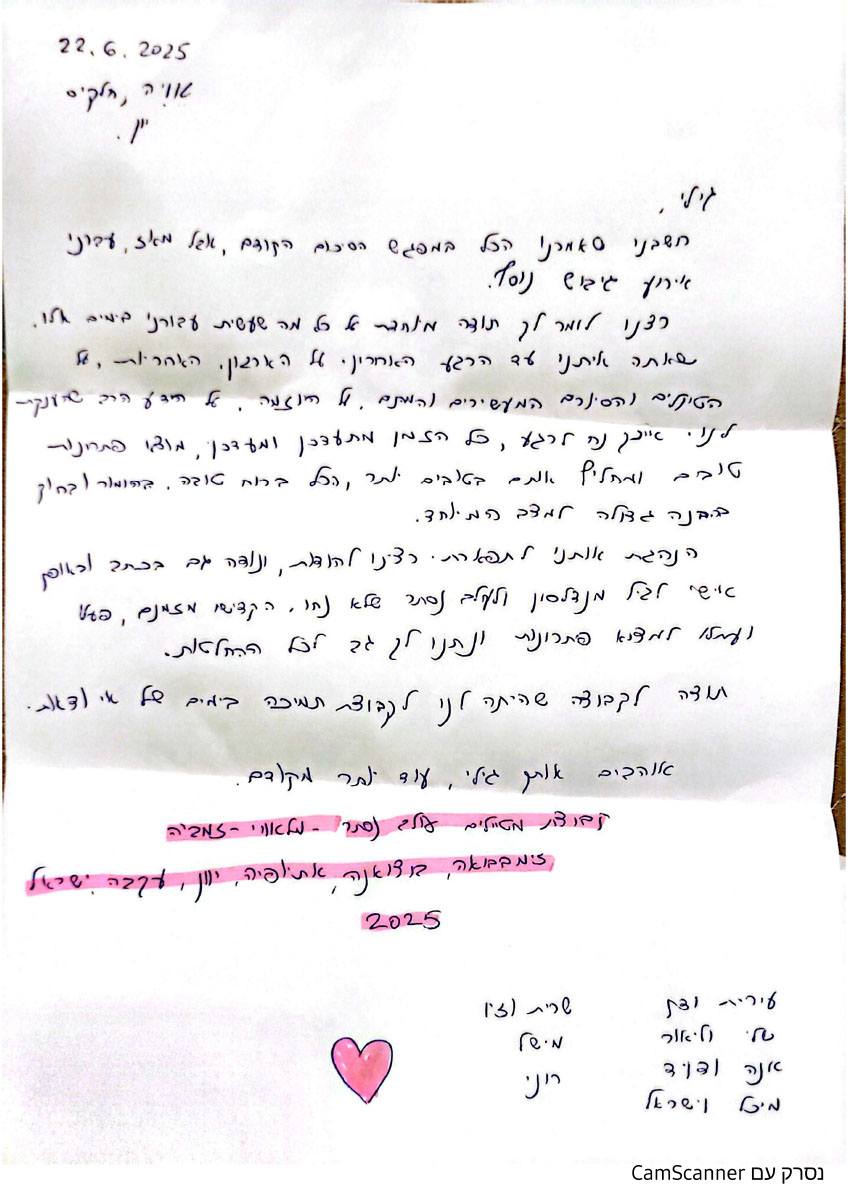 22.6.2025
אוויה, חלקיס
יוון.
גילי,
חשבנו שאמרנו הכל במפגש הסיכום הקודם, אבל מאז, עברנו
אירוע גיבוש נוסף.
רצינו לומר לך תודה מיוחדת על כל מה שעשית עבורנו בימים אלו.
שאתה איתנו עד הרגע האחרון. על הארגון, האחריות, על
הטיולים והסיורים המעשירים והמהנים, על היוזמה, על הידע הרב שהענקת
לנו. אינך נח לרגע, כל הזמן מתעדכן ומעדכן, מוצא פתרונות
טובים ומחליף אותם בטובים יותר, הכל ברוח טובה, בהומור ובחוק
בהבנה גדולה למצב המיוחד.
הנהגת אותנו לתפארת. רצינו להודות, ונודה גם בכתב ובאופן
אישי לגיל מנדלסון ולעולם נסתר שלא נחו, הקדישו מזמנם, פעלו
ועמלו למצוא פתרונות ונתנו לך גב לכל ההחלטות.
תודה לקבוצה שהיתה לנו לקבוצת תמיכה בימים של אי ודאות.
אוהבים אותך גילי, עוד יותר מקודם.
קבוצת מטיילים עולם נסתר - מלאווי - זמביה
זימבבואה, בוצואנה, אתיופיה, יוון, עקבה, ישראל
2025
עירית ודן
טלי וליאור
אנה ודויד
מיכל וישראל
שרית וזיו
מישל
רוני
נסרק עם CamScanner